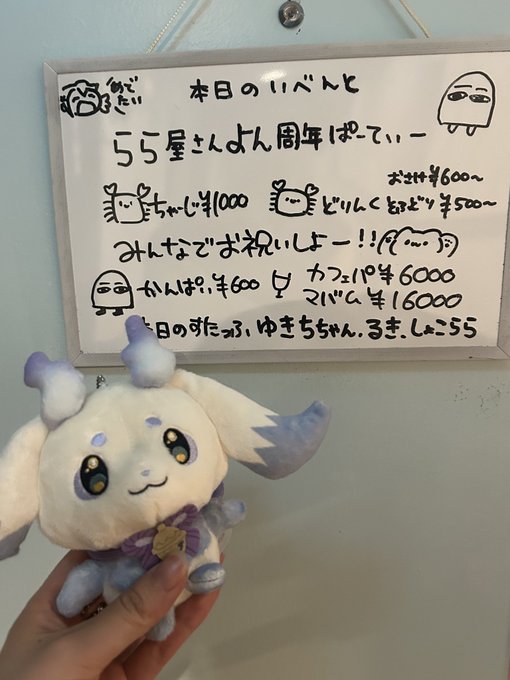 めでたい
本日のいべんと
らら屋さんよん周年ぱーてぃー
おさけ¥600~
ちゃーじ¥1000 どりんく とろどり ¥500~
みんなでお祝いしよー!!
かんぱい¥600 カフェパ¥6000
マバム ¥16000
本日のすたっふ ゆきちちゃん.るき.しょこらら